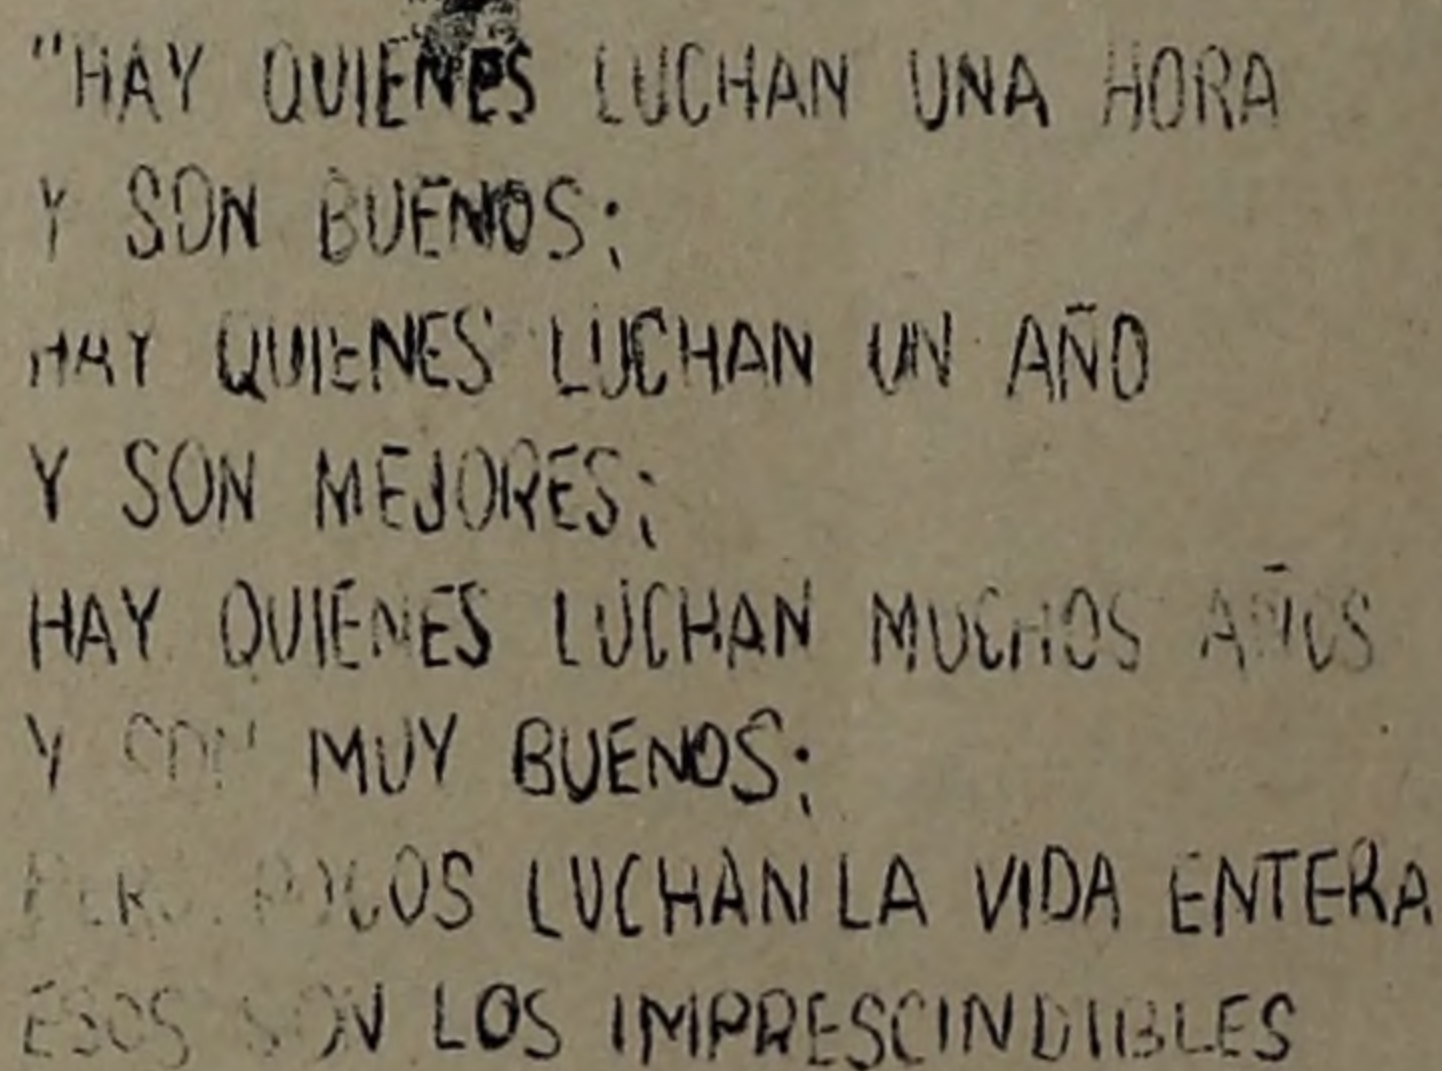 "HAY QUIENES LUCHAN UNA HORA
Y SON BUENOS;
HAY QUIENES LUCHAN UN AÑO
Y SON MEJORES;
HAY QUIENES LUCHAN MUCHOS AÑOS
Y SON MUY BUENOS;
PERO POCOS LUCHAN LA VIDA ENTERA
ESOS SON LOS IMPRESCINDIBLES